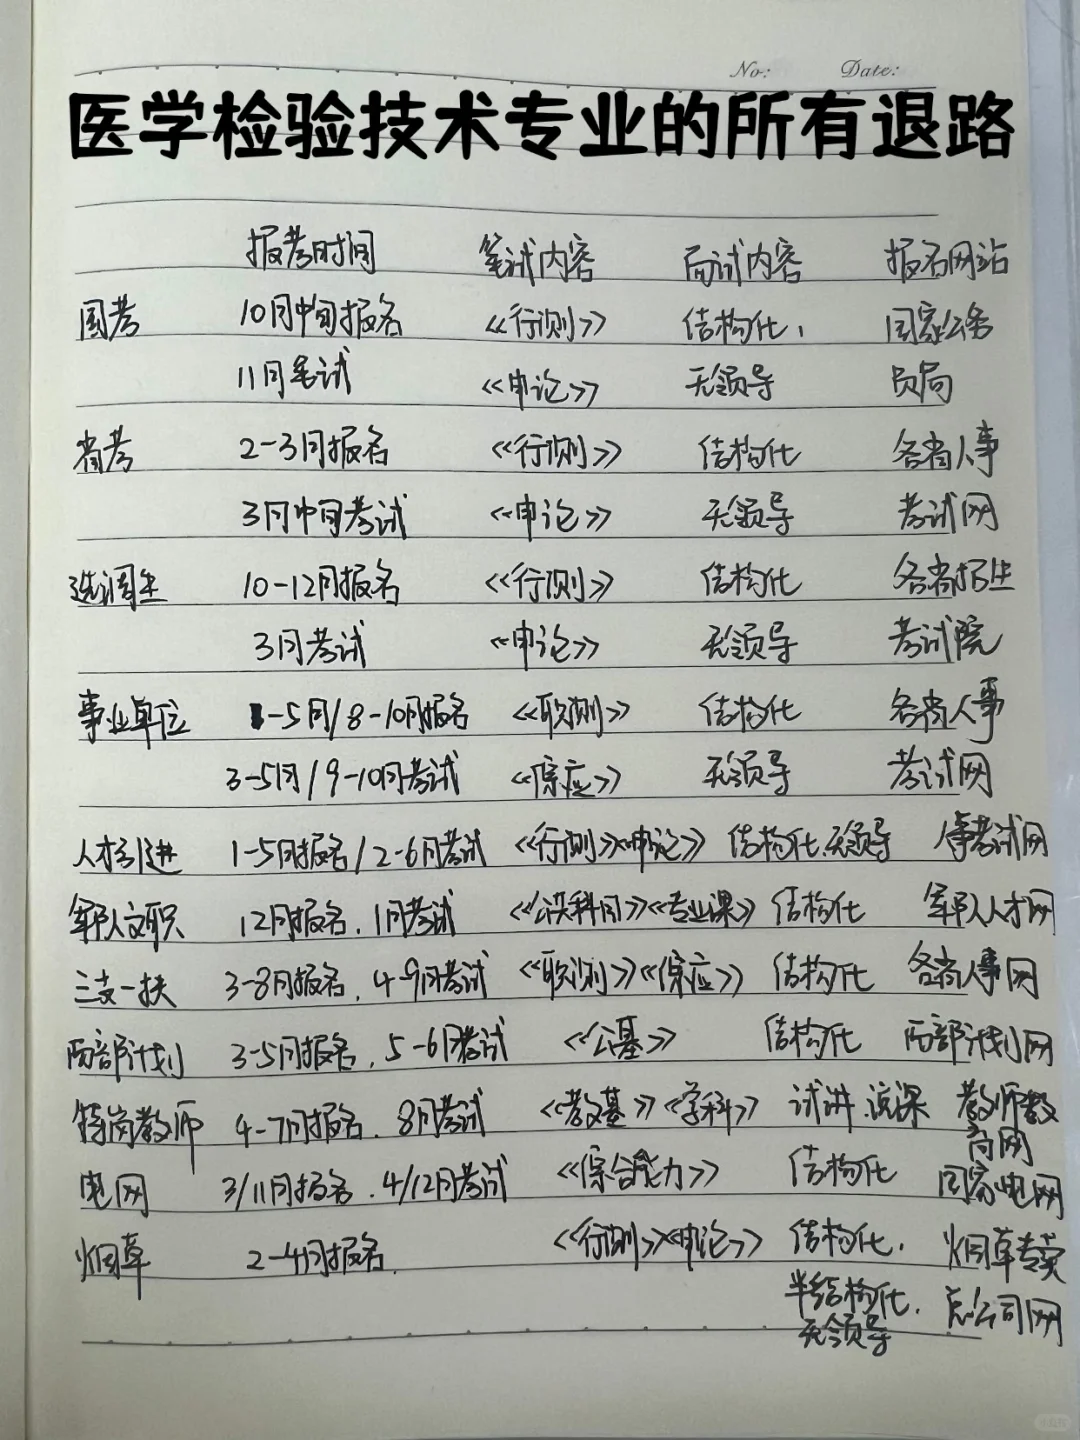 No: Date:
医学检验技术专业的所有退路
报考时间 笔试内容 面试内容 报名网站
国考 10月中旬报名 《行测》 结构化, 国家公务
11月笔试 《申论》 无领导 员局
省考 2-3月报名 《行测》 结构化 各省人事
3月中旬考试 《申论》 无领导 考试网
选调生 10-12月报名 《行测》 结构化 各省招生
3月考试 《申论》 无领导 考试院
事业单位 1-5月/8-10月报名 《职测》 结构化 各省人事
3-5月/9-10月考试 《综应》 无领导 考试网
人才引进 1-5月报名/2-6月考试 《行测》《申论》 结构化.无领导 人事考试网
军队文职 12月报名.1月考试 《公共科目》《专业课》 结构化 军队人才网
三支一扶 3-8月报名.4-9月考试 《职测》《综应》 结构化 各省人事网
西部计划 3-5月报名.5-6月考试 《公基》 结构化 西部计划网
特岗教师 4-7月报名.8月考试 《教基》《学科》 试讲.说课 教师教
育网
电网 3/11月报名.4/12月考试 《综合能力》 结构化 国家电网
烟草 2-4月报名. 《行测》《申论》 结构化. 烟草专卖
半结构化. 总公司网
无领导